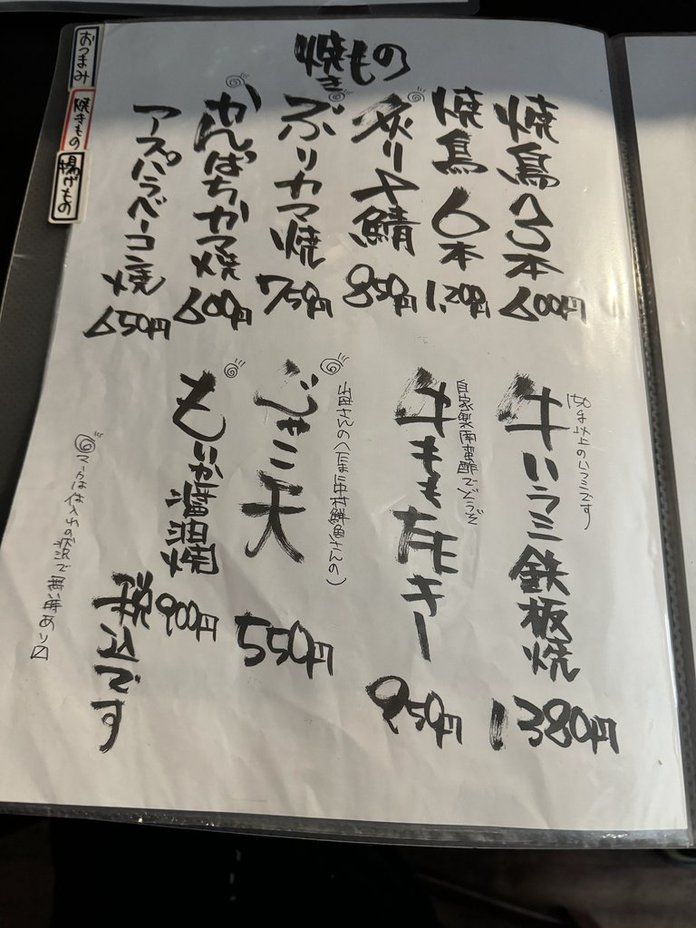 おつまみ
焼きもの
揚げもの
焼きもの
焼鳥3本
600円
焼鳥6本
1,200円
炙り〆鯖
850円
ぶりカマ焼
750円
かんぱちカマ焼
600円
アスパラベーコン焼
650円
150g以上のイチミです
牛いちミ鉄板焼
1380円
自家製南蛮酢でどうぞ
牛ももたたキー
950円
じゃこ天
550円
もいか醤油焼
900円
税込です
マークは仕入れの状況で無い時あり〼